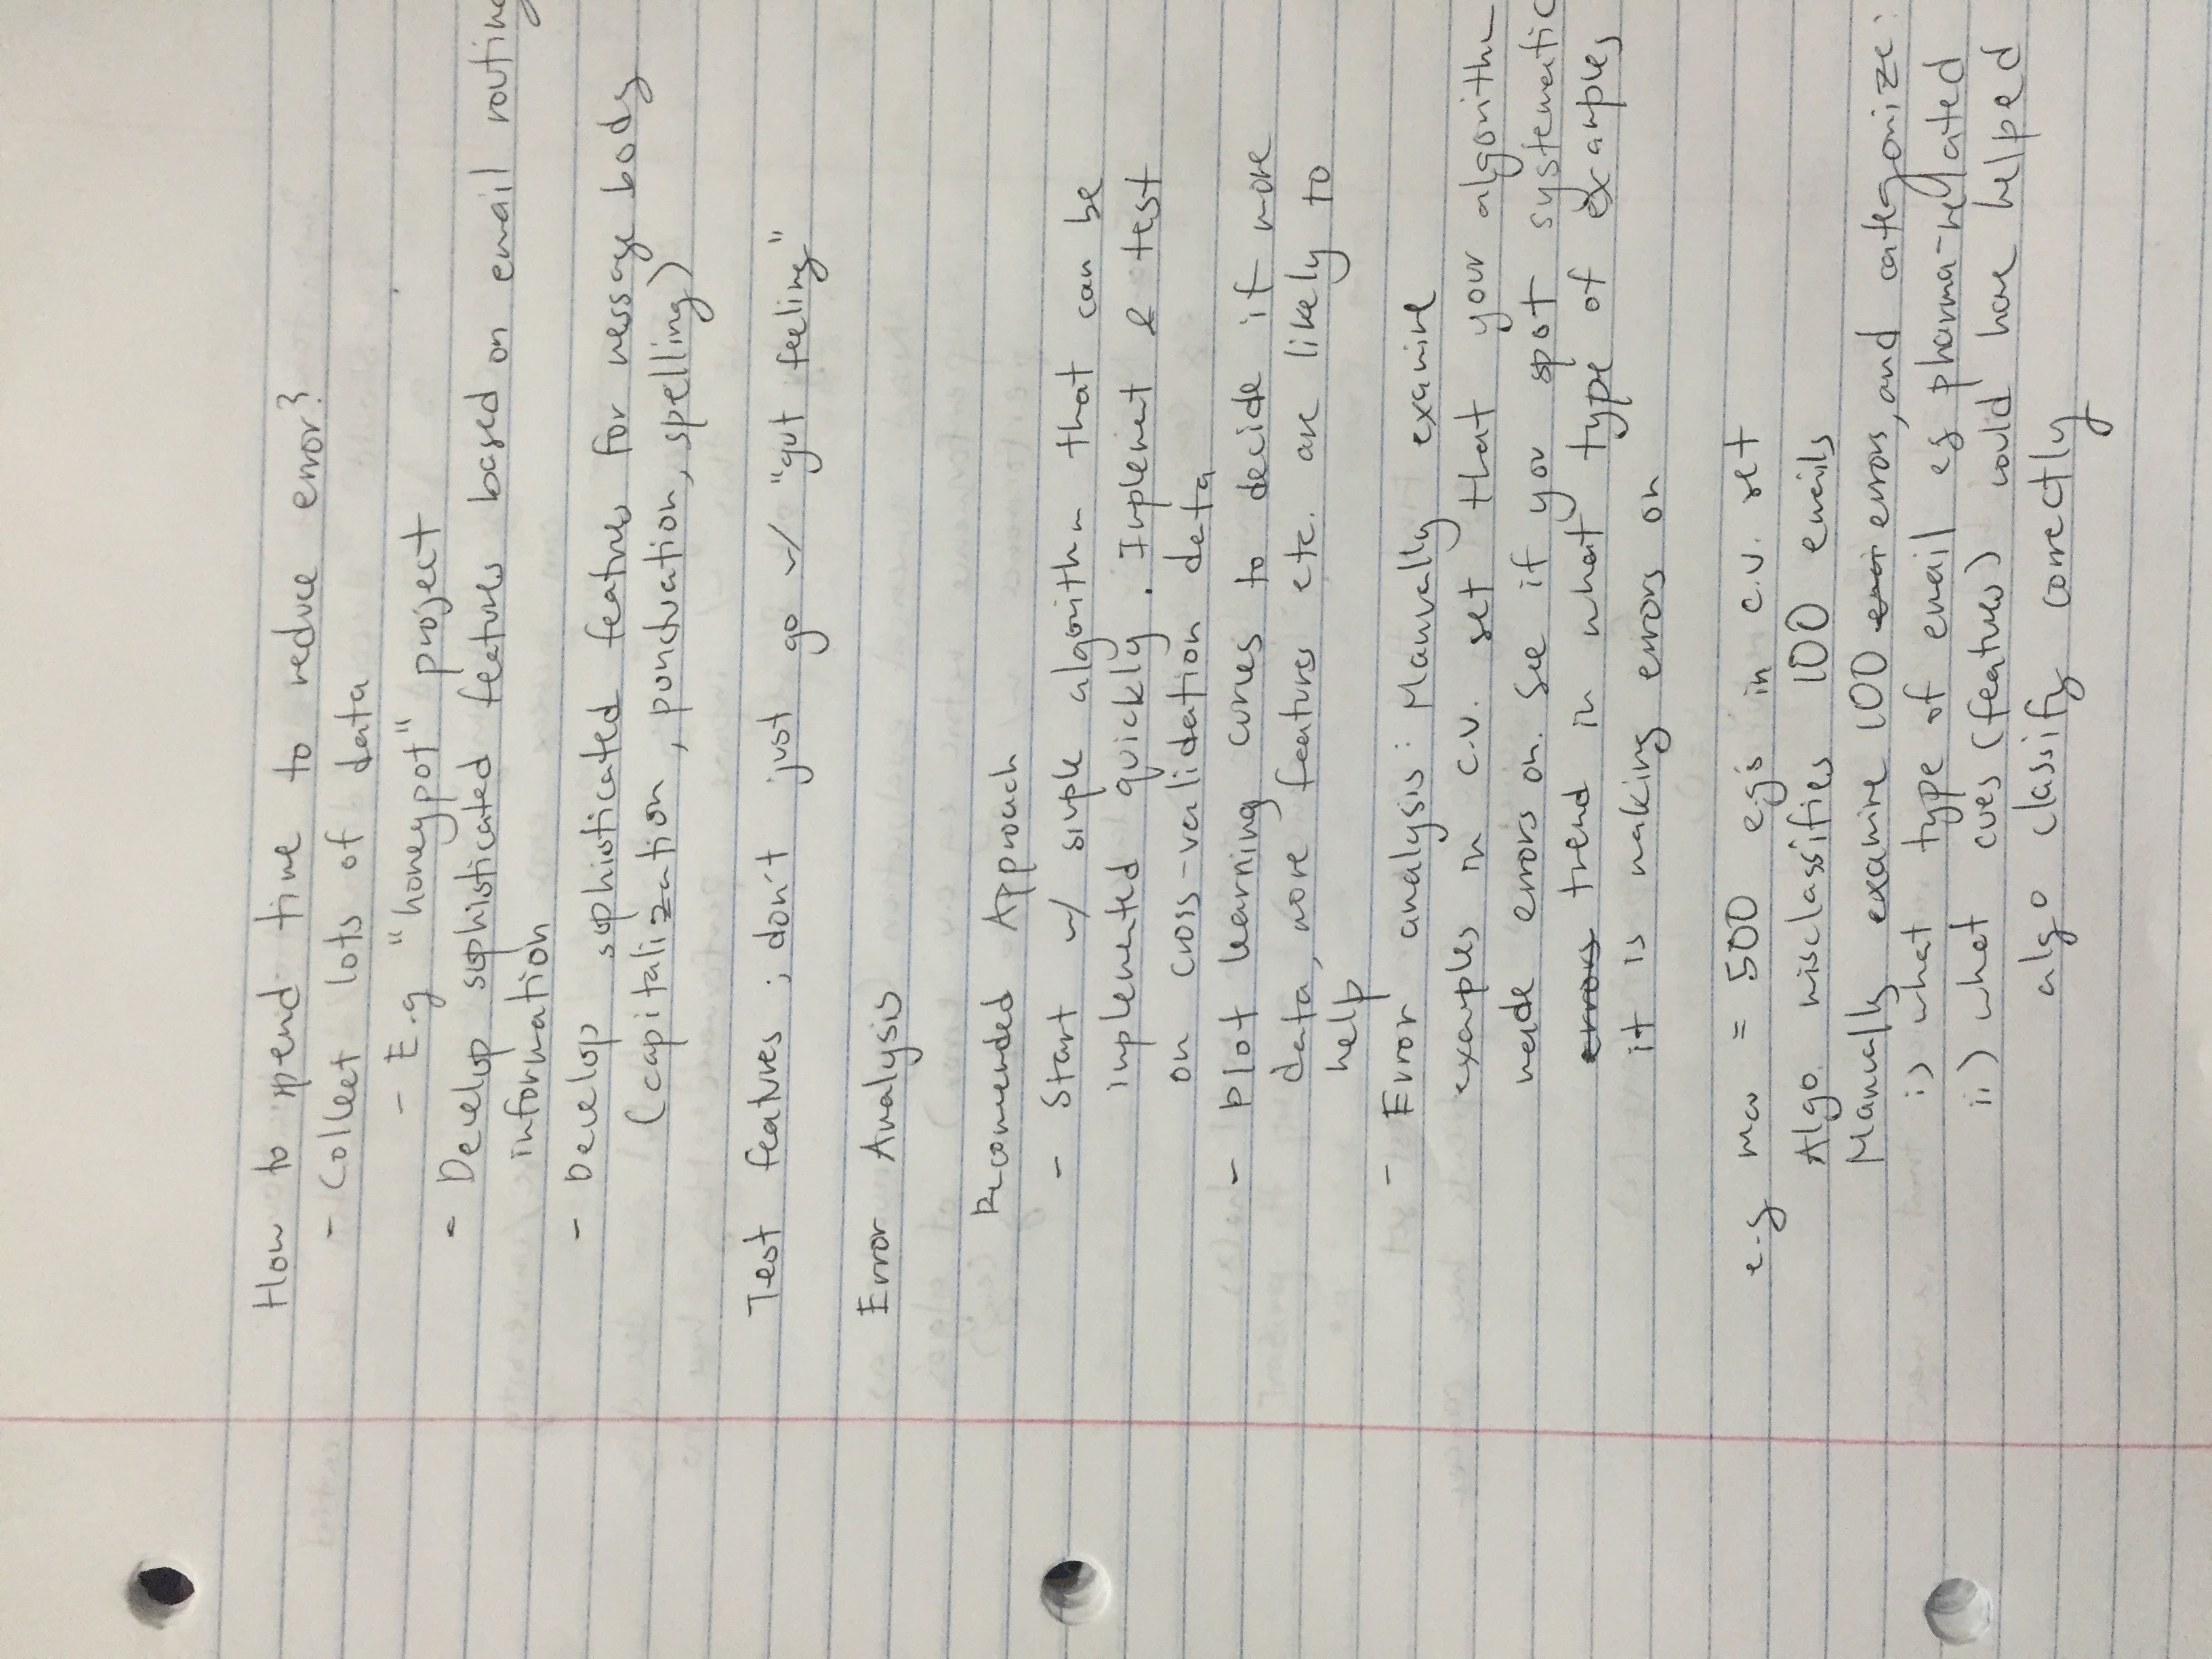 How to spend time to reduce error?
- Collect lots of data
- E.g "honeypot" project
- Develop sophisticated features based on email routing
information
- Develop sophisticated features for message body
(capitalization, punctuation, spelling)
Test features ; don't just go w/ "gut feeling"
Error Analysis
Recommended Approach
- Start w/ simple algorithm that can be
implemented quickly. Implement & test
on cross-validation data
- Plot learning curves to decide if more
data, more features etc. are likely to
help
- Error analysis: Manually examine
examples in c.v. set that your algorithm
made errors on. See if you spot systematic
errors trend in what type of examples
it is making errors on
e.g mcv = 500 e.g's in c.v. set
Algo. misclassifies 100 emails
Manually examine 100 errors, and categorize:
i) what type of email eg pharma-related
ii) what cues (features) would have helped
algo classify correctly